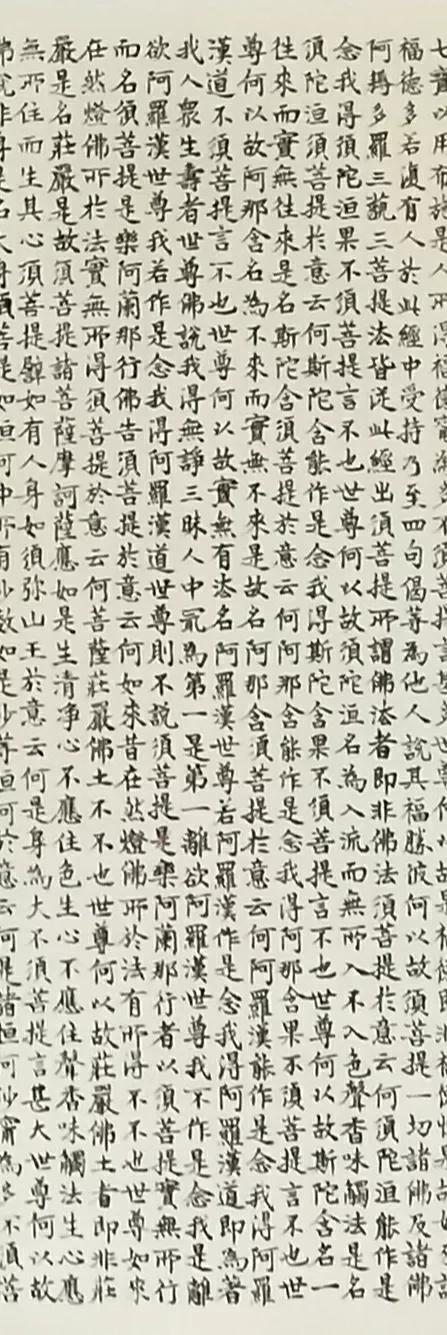 七寶以用布施是人所得福德寧為多不須菩提言甚多世尊何以故是福德即非福德性是故如來說
福德多若復有人於此經中受持乃至四句偈等為他人說其福勝彼何以故須菩提一切諸佛及諸佛
阿耨多羅三藐三菩提法皆從此經出須菩提所謂佛法者即非佛法須菩提於意云何須陀洹能作是
念我得須陀洹果不須菩提言不也世尊何以故須陀洹名為入流而無所入不入色聲香味觸法是名
須陀洹須菩提於意云何斯陀含能作是念我得斯陀含果不須菩提言不也世尊何以故斯陀含名一
往來而實無往來是名斯陀含須菩提於意云何阿那含能作是念我得阿那含果不須菩提言不也世
尊何以故阿那含名為不來而實無不來是故名阿那含須菩提於意云何阿羅漢能作是念我得阿羅
漢道不須菩提言不也世尊何以故實無有法名阿羅漢世尊若阿羅漢作是念我得阿羅漢道即為著
我人眾生壽者世尊佛說我得無諍三昧人中最為第一是第一離欲阿羅漢世尊我不作是念我是離
欲阿羅漢世尊我若作是念我得阿羅漢道世尊則不說須菩提是樂阿蘭那行者以須菩提實無所行
而名須菩提是樂阿蘭那行佛告須菩提於意云何如來昔在然燈佛所於法有所得不不也世尊如來
在然燈佛所於法實無所得須菩提於意云何菩薩莊嚴佛土不不也世尊何以故莊嚴佛土者即非莊
嚴是名莊嚴是故須菩提諸菩薩摩訶薩應如是生清淨心不應住色生心不應住聲香味觸法生心應
無所住而生其心須菩提譬如有人身如須彌山王於意云何是身為大不須菩提言甚大世尊何以故
佛說非身是名大身須菩提如恒河中所有沙數如是沙等恒河於意云何是諸恒河沙寧為多不須菩